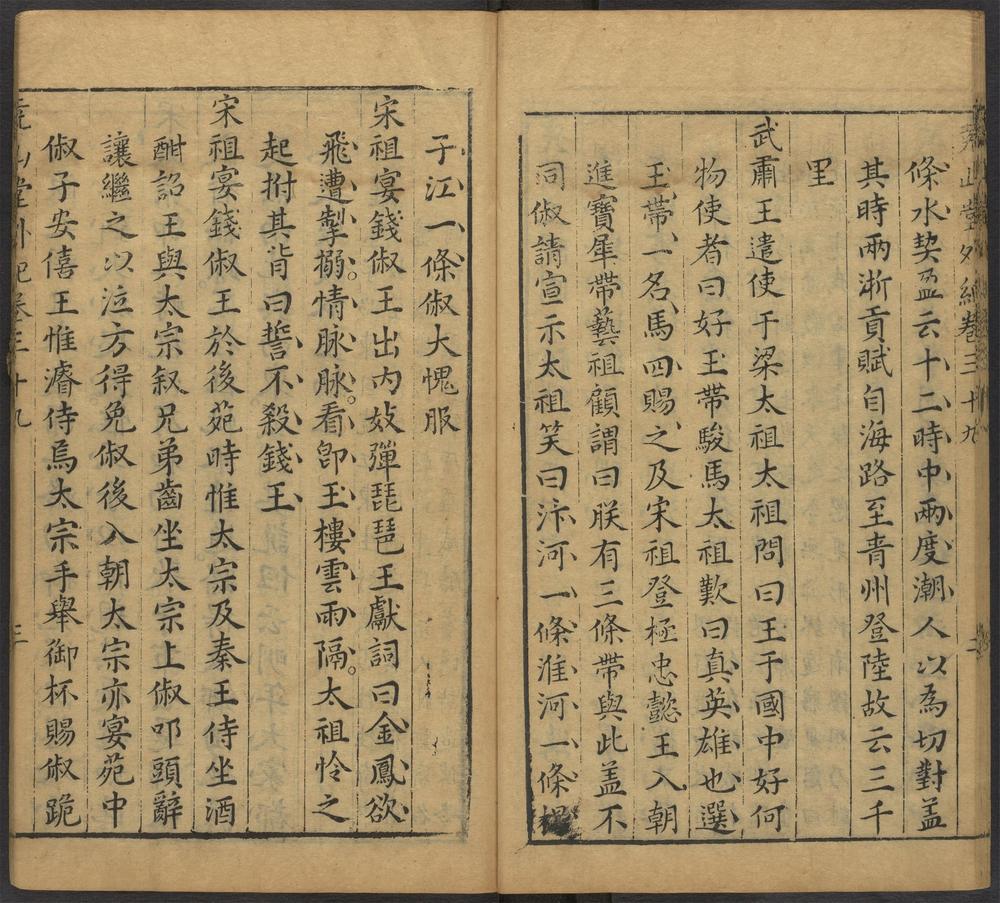 堯山堂外紀卷三十九 二
條水契盈云十二時中兩度潮人以為切對盖
其時兩浙貢賦自海路至青州登陸故云三千
里
武肅王遣使于梁太祖太祖問曰王于國中好何
物使者曰好玉帶駿馬太祖歎曰真英雄也選
玉帶一名馬四賜之及宋祖登極忠懿王入朝
進寶犀帶藝祖顧謂曰朕有三條帶與此盖不
同俶請宣示太祖笑曰汴河一條淮河一條楊
子江一條俶大愧服
宋祖宴錢俶王出內妓彈琵琶王獻詞曰金鳳欲
飛遭掣搦。情脉脉。看卽玉樓雲雨隔。太祖怜之
起拊其背曰誓不殺錢王
宋祖宴錢俶王於後苑時惟太宗及秦王侍坐酒
酣詔王與太宗叙兄弟齒坐太宗上俶叩頭辭
讓繼之以泣方得免俶後入朝太宗亦宴苑中
俶子安僖王惟濬侍焉太宗手舉御杯賜俶跪
堯山堂外紀卷三十九 三